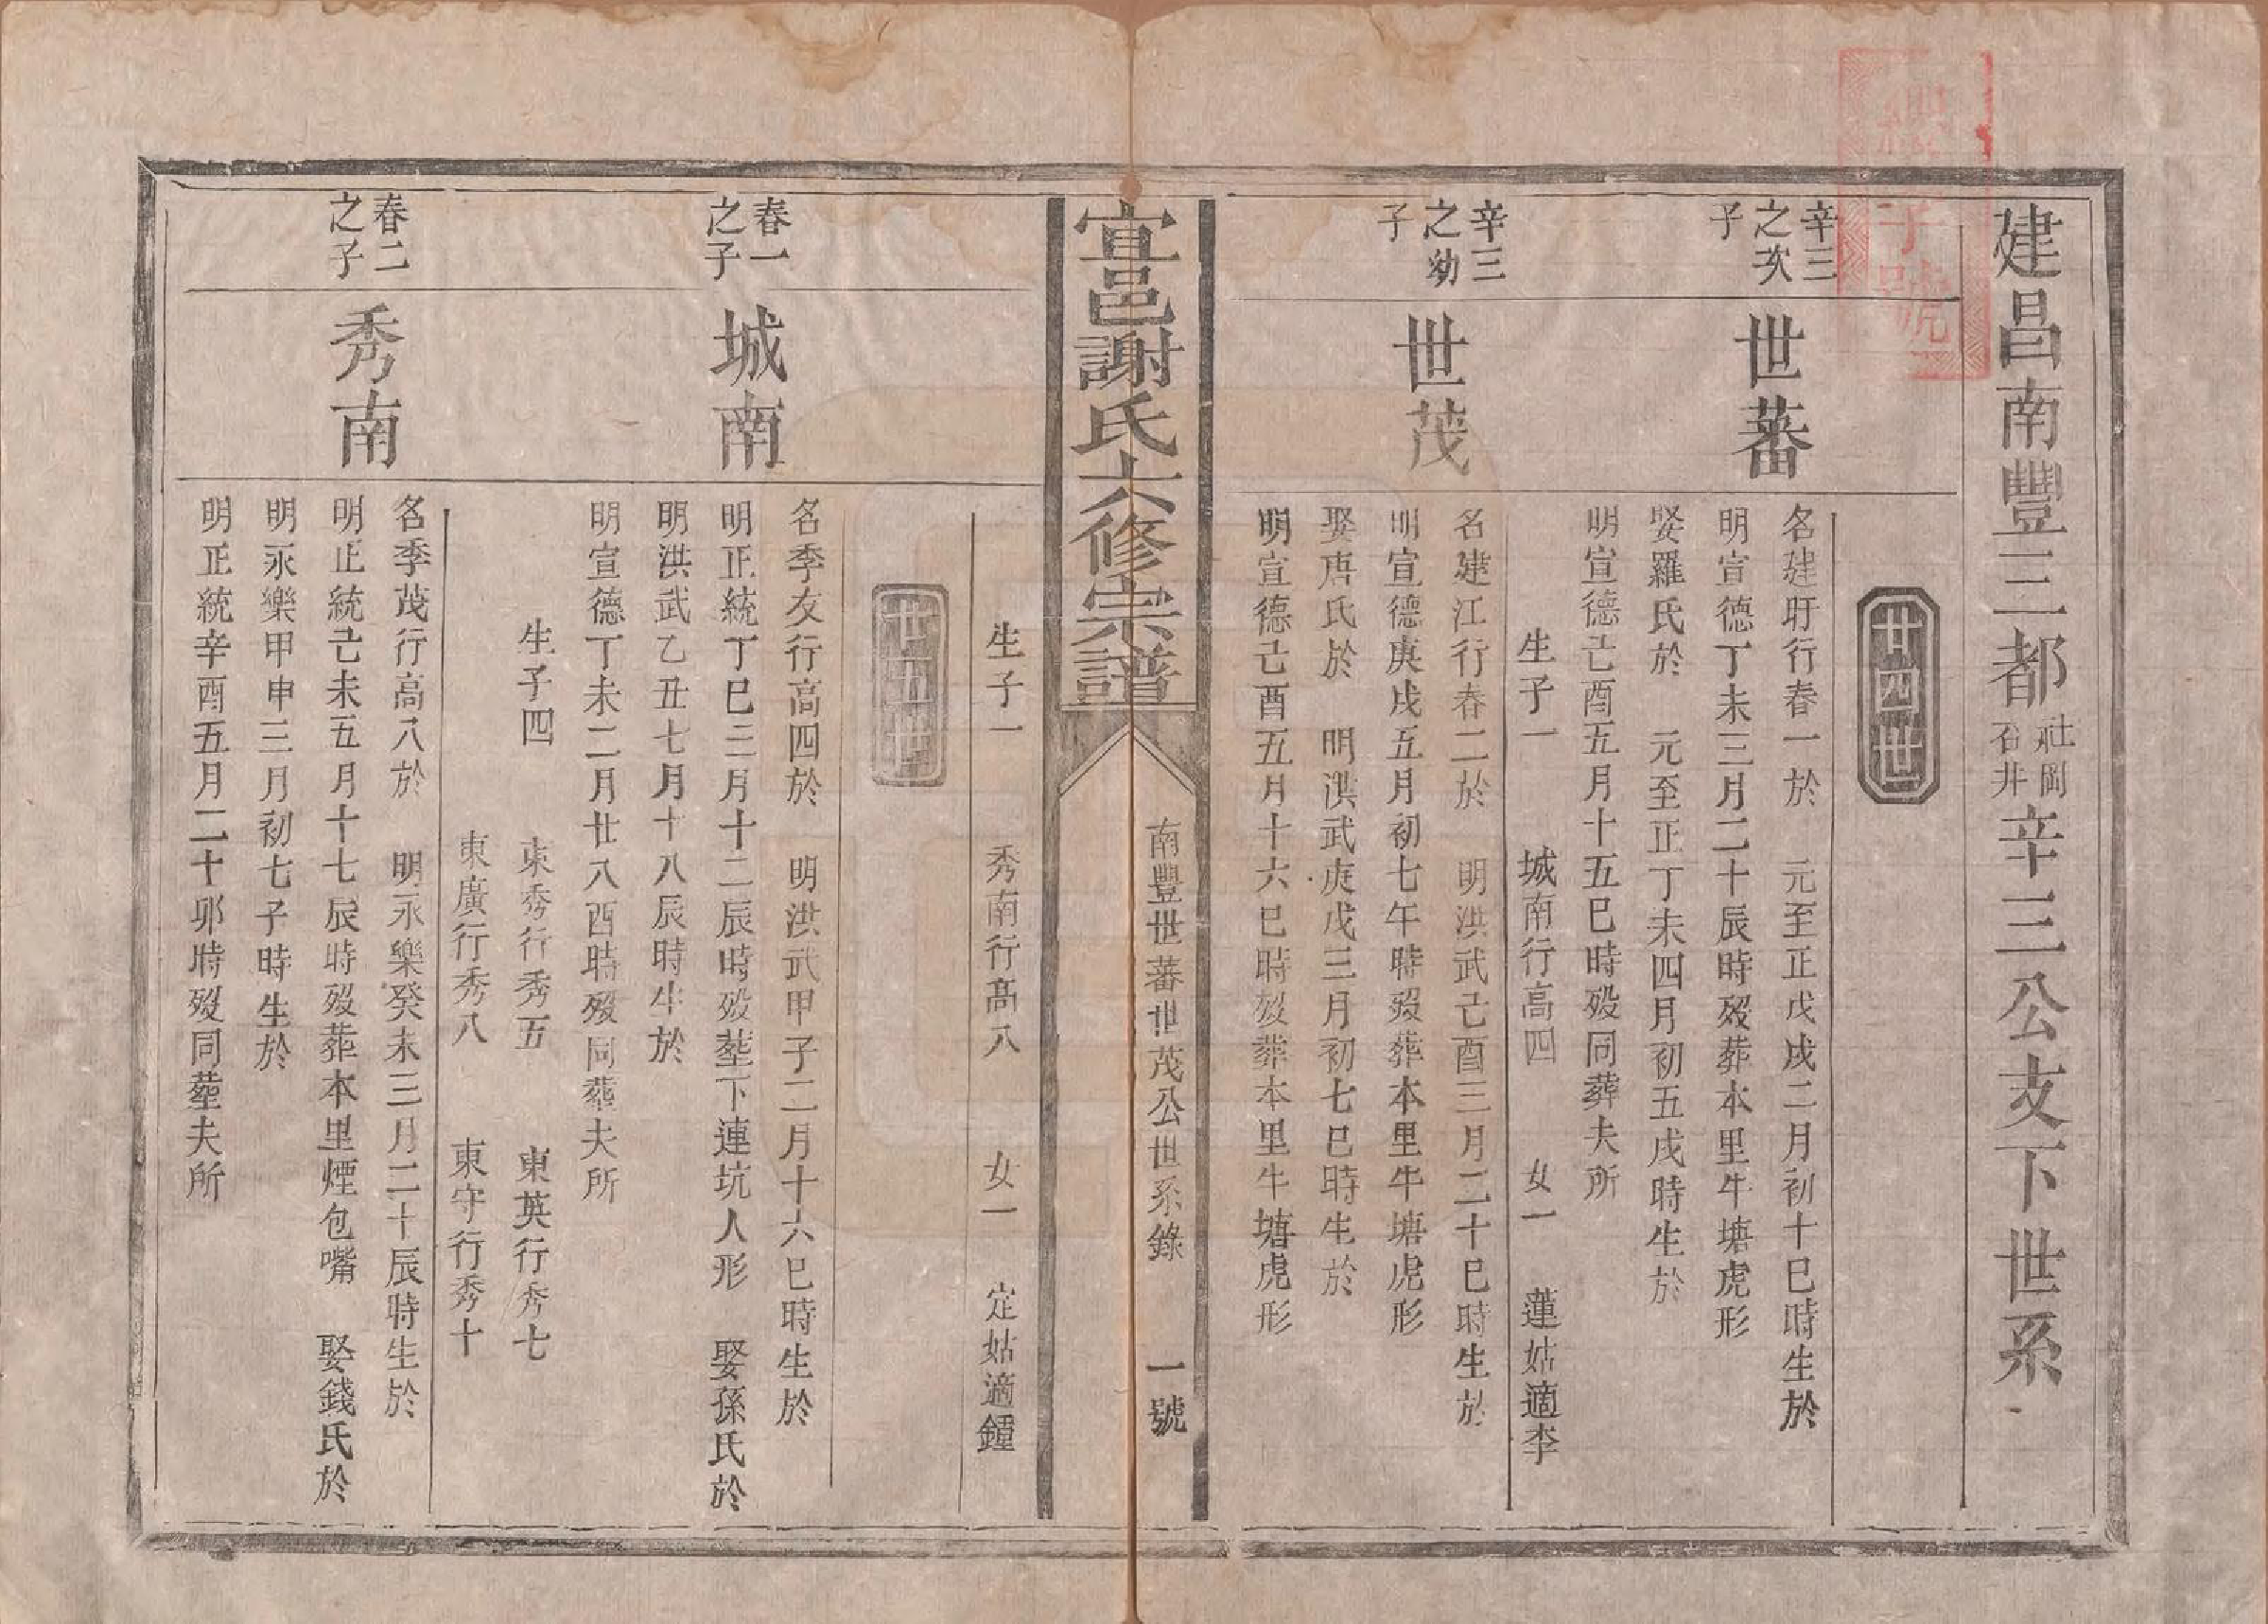 建昌南豐三都社岡石井辛三公支下世系
廿四世
辛三之次子
世蕃
名建盱行春一於 元至正戊戌二月初十巳時生於
明宣德丁未三月二十辰時歿葬本里牛塘虎形
娶羅氏於 元至正丁未四月初五戌時生於
明宣德己酉五月十五巳時歿同葬夫所
生子一 城南行高四 女一 蓮姑適李
辛三之幼子
世茂
名建江行春二於 明洪武己酉三月二十巳時生於
明宣德庚戌五月初七午時歿葬本里牛塘虎形
娶唐氏於 明洪武庚戌三月初七巳時生於
明宣德己酉五月十六巳時歿葬本里牛塘虎形
宜邑謝氏六修宗譜
南豐世蕃世茂公世系錄 一號
生子一 秀南行高八 女一 定姑適鍾
廿五世
春一之子
城南
名季友行高四於 明洪武甲子二月十六巳時生於
明正統丁巳三月十二辰時歿塟下連坑人形 娶孫氏於
明洪武乙丑七月十八辰時生於
明宣德丁未二月廿八酉時歿同葬夫所
生子四 東秀行秀五 東英行秀七
東廣行秀八 東守行秀十
春二之子
秀南
名季茂行高八於 明永樂癸未三月二十辰時生於
明正統己未五月十七辰時歿葬本里煙包嘴 娶錢氏於
明永樂甲申三月初七子時生於
明正統辛酉五月二十卯時歿同塟夫所